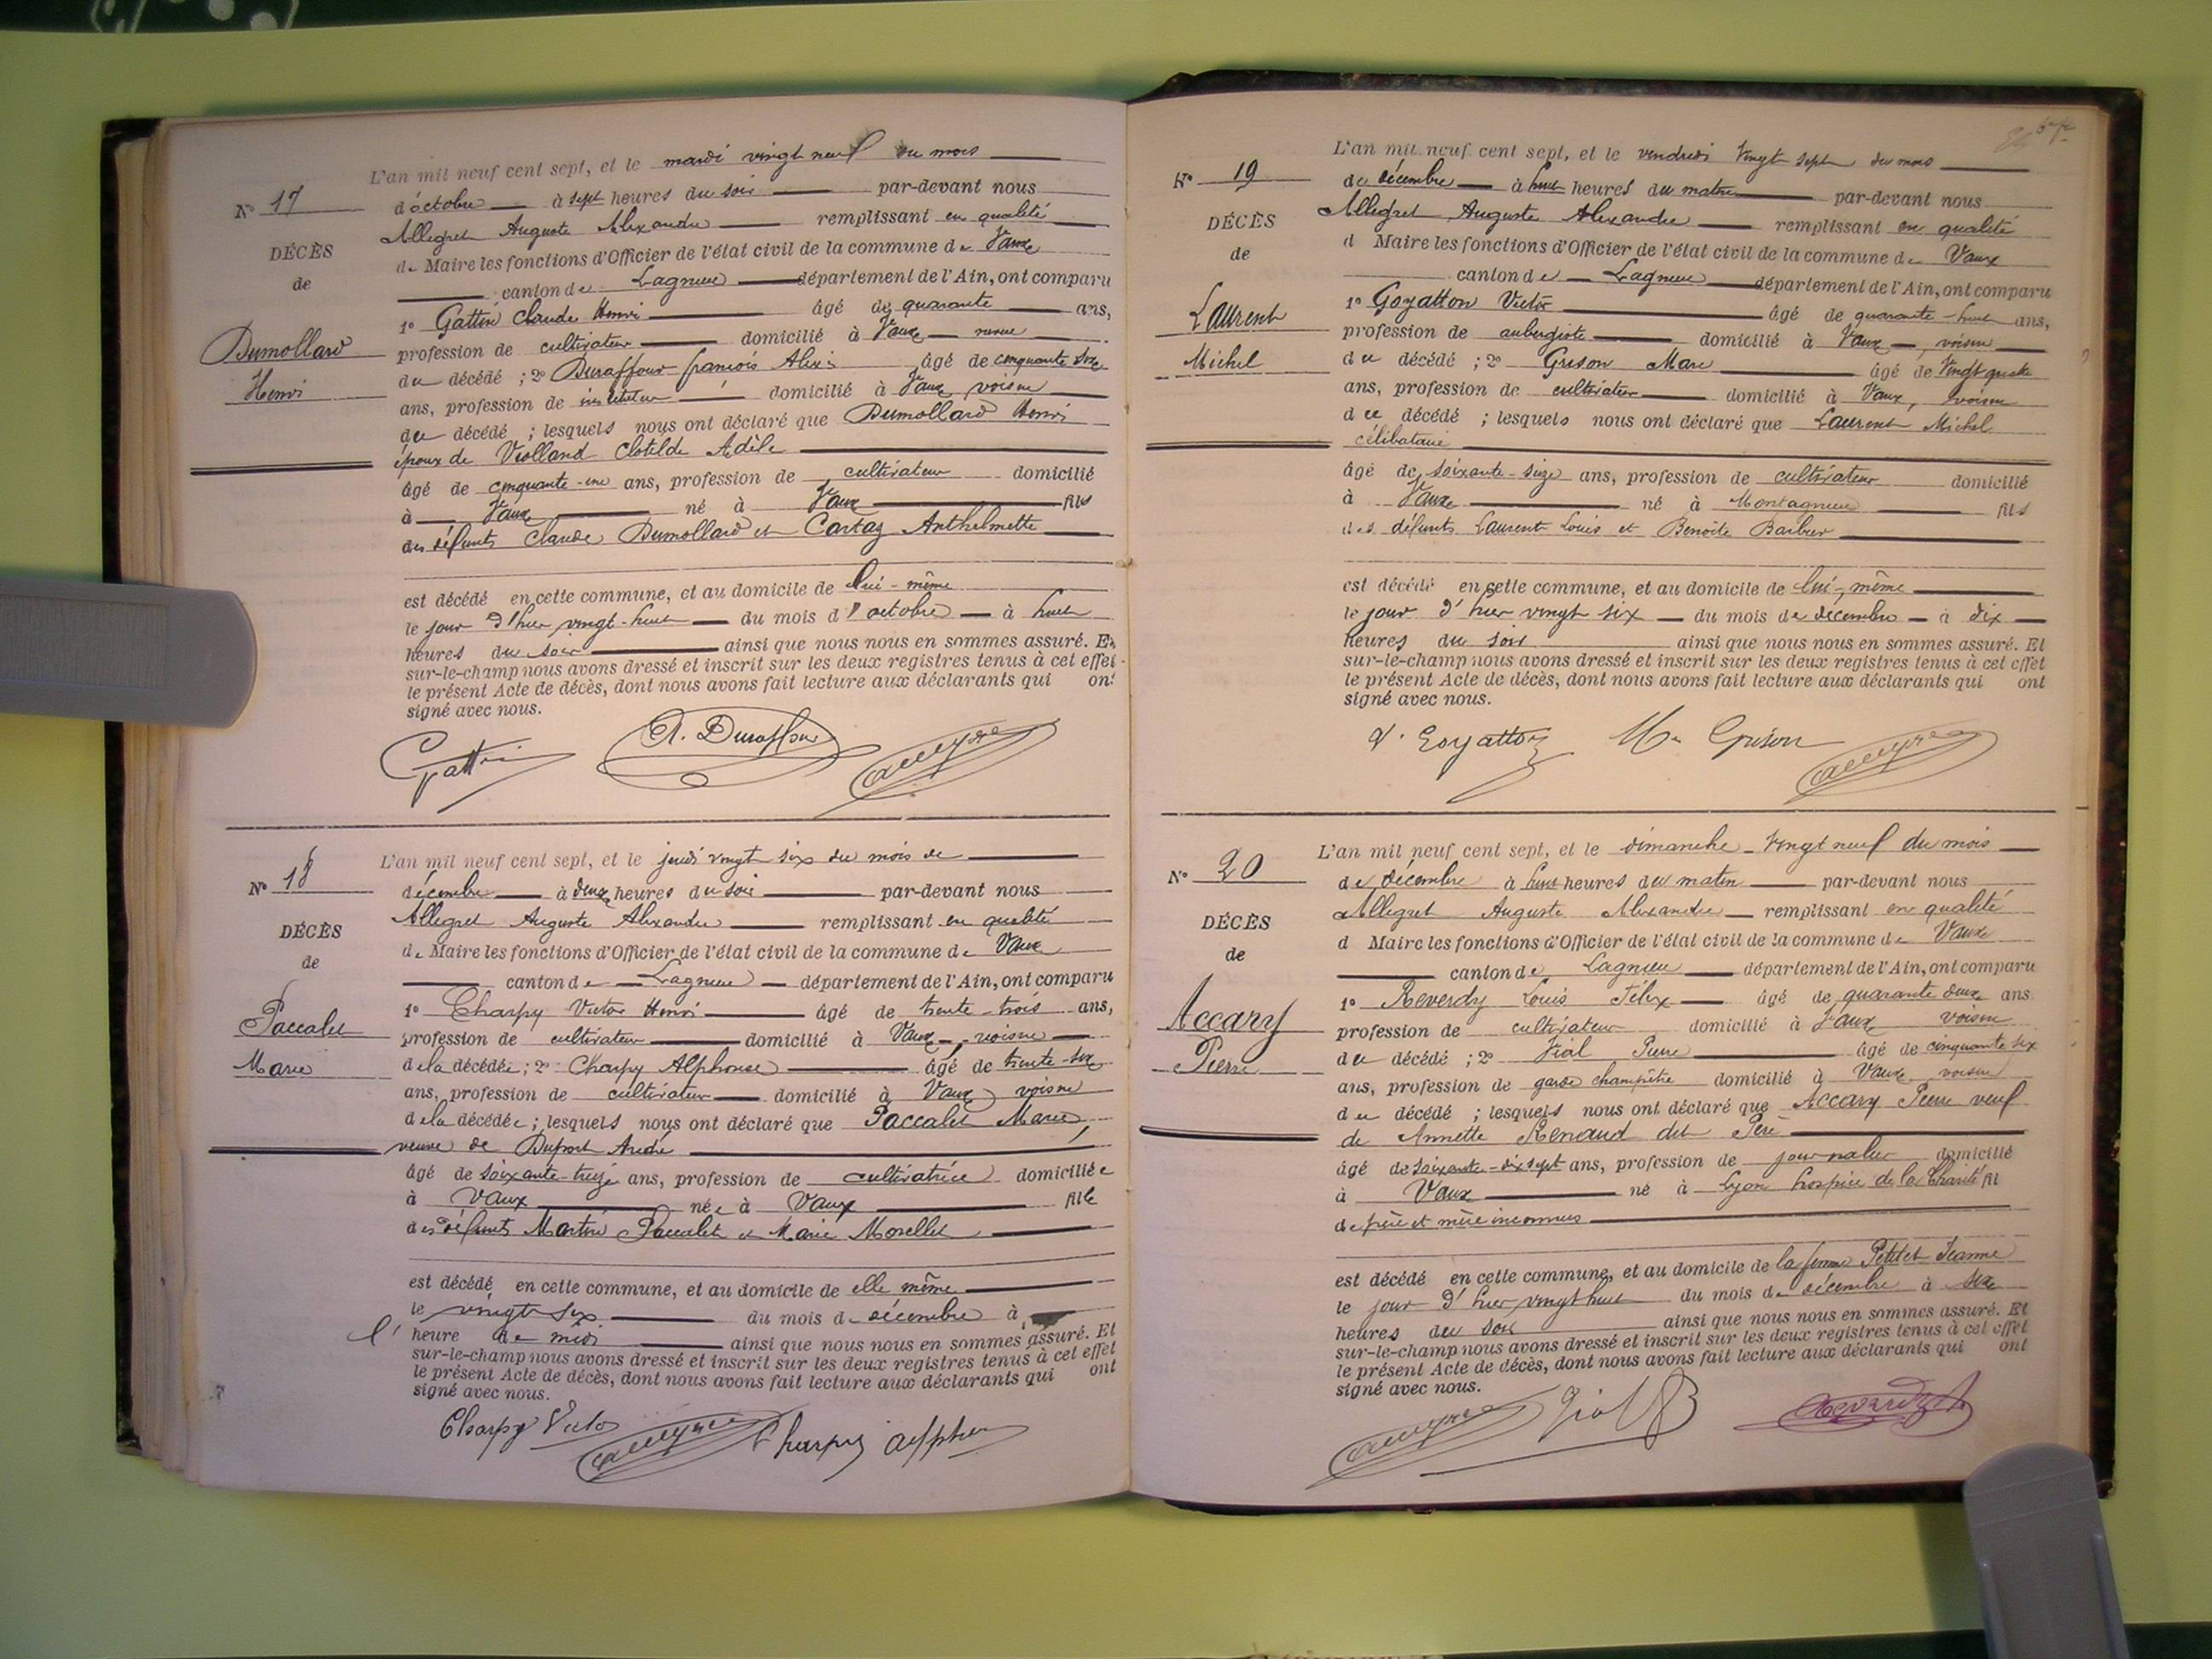 L'an mil neuf cent sept, et le mardi vingt neuf du mois
N° 17
d'octobre à sept heures du soir par-devant nous
Allegret Auguste Alexandre remplissant en qualité
DÉCÈS
de Maire les fonctions d'Officier de l'état civil de la commune de Vaux
de
canton de Lagnieu département de l'Ain, ont comparu
1° Gattin Claude Henri âgé de quarante ans,
Dumollard
profession de cultivateur domicilié à Vaux neveu
du décédé ; 2° Duraffour françois Alexis âgé de cinquante six
Henri
ans, profession de instituteur domicilié à Vaux voisin
du décédé ; lesquels nous ont déclaré que Dumollard Henri
époux de Violland Clotilde Adèle
âgé de cinquante-un ans, profession de cultivateur domicilié
à Vaux né à Vaux fils
des défunts Claude Dumollard et Cartaz Anthelmette
est décédé en cette commune, et au domicile de lui-même
le jour d'hier vingt-huit du mois d'octobre à huit
heures du soir ainsi que nous nous en sommes assuré. Et
sur-le-champ nous avons dressé et inscrit sur les deux registres tenus à cet effet
le présent Acte de décès, dont nous avons fait lecture aux déclarants qui ont
signé avec nous.
Gattin A. Duraffour
L'an mil neuf cent sept, et le jeudi vingt six du mois de
N° 18
décembre à deux heures du soir par-devant nous
Allegret Auguste Alexandre remplissant en qualité
DÉCÈS
de Maire les fonctions d'Officier de l'état civil de la commune de Vaux
de
canton de Lagnieu département de l'Ain, ont comparu
1° Charpy Victor Henri âgé de trente-trois ans,
Paccalet
profession de cultivateur domicilié à Vaux, voisin
Marie
de la décédée ; 2° Charpy Alphonse âgé de trente-six
ans, profession de cultivateur domicilié à Vaux voisin
de la décédée ; lesquels nous ont déclaré que Paccalet Marie,
veuve de Duport André
âgé de soixante-treize ans, profession de cultivatrice domiciliée
à Vaux née à Vaux fille
des défunts Martin Paccalet et Marie Morellet
est décédé en cette commune, et au domicile de elle même
le vingt six du mois de décembre à
l' heure de midi ainsi que nous nous en sommes assuré. Et
sur-le-champ nous avons dressé et inscrit sur les deux registres tenus à cet effet
le présent Acte de décès, dont nous avons fait lecture aux déclarants qui ont
signé avec nous.
Charpy Victor Charpy alphonse
L'an mil neuf cent sept, et le vendredi vingt sept du mois
N° 19
de décembre à huit heures du matin par-devant nous
Allegret Auguste Alexandre remplissant en qualité
DÉCÈS
d Maire les fonctions d'Officier de l'état civil de la commune de Vaux
de
canton de Lagnieu département de l'Ain, ont comparu
1° Goyatton Victor âgé de quarante-huit ans,
Laurent
profession de aubergiste domicilié à Vaux, voisin
Michel
du décédé ; 2° Grison Marc âgé de vingt quatre
ans, profession de cultivateur domicilié à Vaux, voisin
du décédé ; lesquels nous ont déclaré que Laurent Michel
célibataire
âgé de soixante-seize ans, profession de cultivateur domicilié
à Vaux né à Montagnieu fils
des défunts Laurent Louis et Benoîte Barbier
est décédé en cette commune, et au domicile de lui-même
le jour d'hier vingt six du mois de décembre à dix
heures du soir ainsi que nous nous en sommes assuré. Et
sur-le-champ nous avons dressé et inscrit sur les deux registres tenus à cet effet
le présent Acte de décès, dont nous avons fait lecture aux déclarants qui ont
signé avec nous.
V. Goyatton Mc Grison
L'an mil neuf cent sept, et le dimanche vingt neuf du mois
N° 20
de décembre à huit heures du matin par-devant nous
Allegret Auguste Alexandre remplissant en qualité
DÉCÈS
d Maire les fonctions d'Officier de l'état civil de la commune de Vaux
de
canton de Lagnieu département de l'Ain, ont comparu
1° Reverdy Louis Félix âgé de quarante deux ans
Accary
profession de cultivateur domicilié à Vaux voisin
Pierre
du décédé ; 2° Vial Pierre âgé de cinquante six
ans, profession de garde champêtre domicilié à Vaux voisin
du décédé ; lesquels nous ont déclaré que Accary Pierre veuf
de Annette Renaud dit Père
âgé de soixante-dix sept ans, profession de journalier domicilié
à Vaux né à Lyon hospice de la Charité fil
de père et mère inconnus
est décédé en cette commune, et au domicile de la femme Petitet Jeanne
le jour d'hier vingt huit du mois de décembre à six
heures du soir ainsi que nous nous en sommes assuré. Et
sur-le-champ nous avons dressé et inscrit sur les deux registres tenus à cet effet
le présent Acte de décès, dont nous avons fait lecture aux déclarants qui ont
signé avec nous.
Vial Reverdy